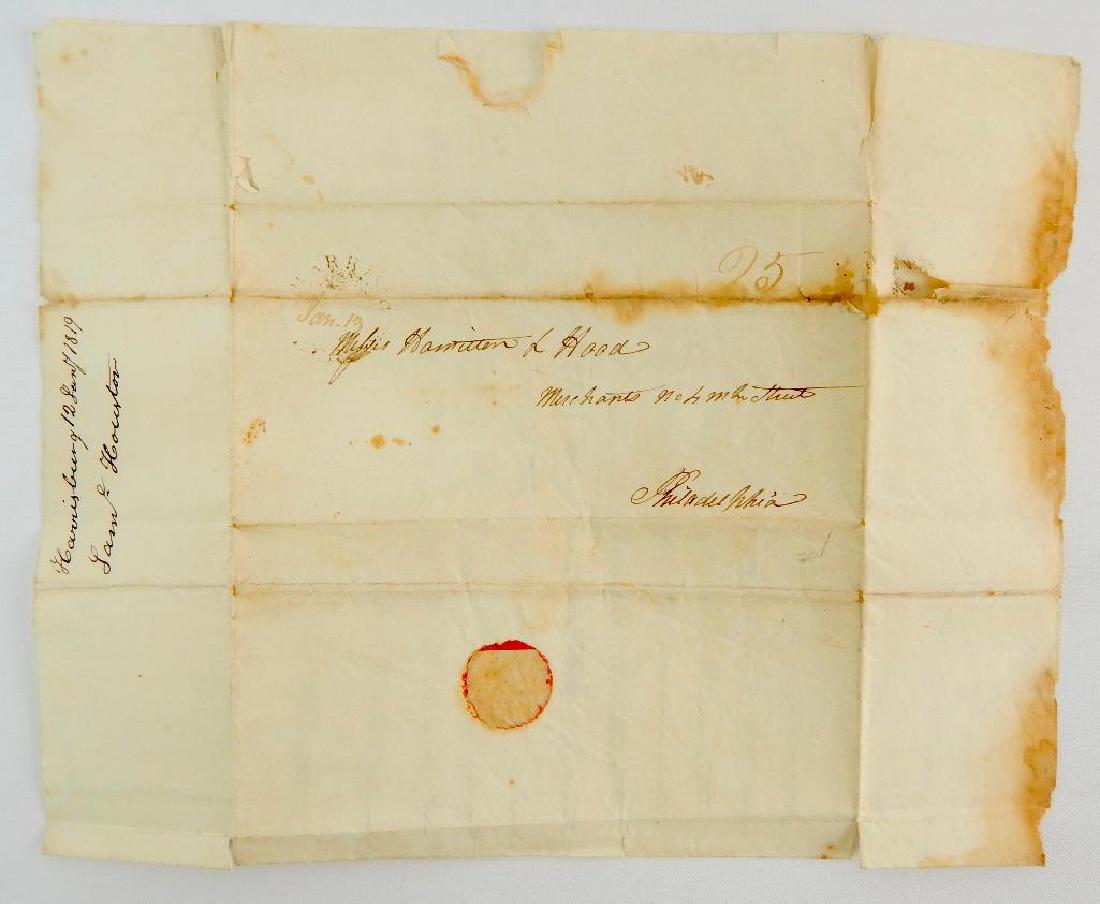 25
Jan. 13
Messrs Hamilton & Hood
Merchants No 4 Street
Philadelphia
Harrisburg 12 Jany 1819
Saml Houston